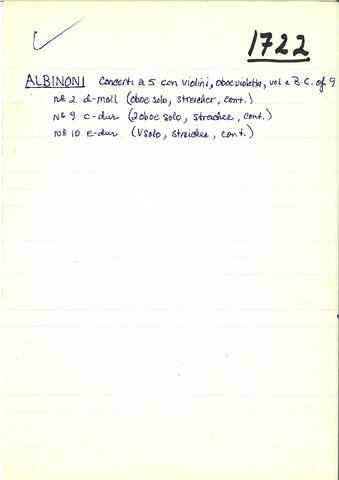 1722
ALBINONI Concerti a 5 con violini, oboe violetta, vol e B.C. op. 9
No 2 d-moll (oboe solo, streicher, cont.)
No 9 C-dur (2 oboe solo, streicher, cont.)
No 10 E-dur (V solo, streicher, cont.)